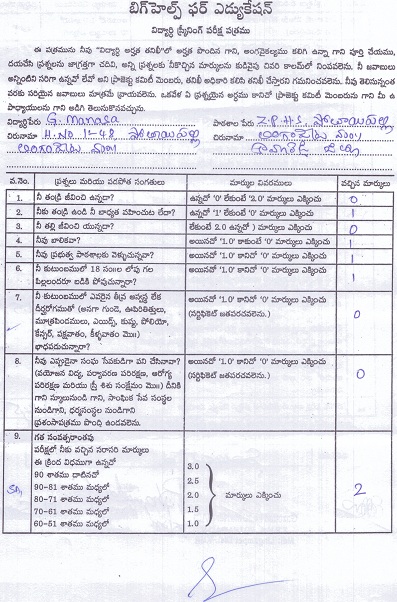 బిగ్‌హెల్ప్ ఫర్ ఎడ్యుకేషన్
విద్యార్థి స్క్రీనింగ్ పరీక్ష పత్రము
ఈ పత్రమున నీవు "విద్యార్థి అర్హత తనిఖీ"లో అర్హత పొందిన గాని, అంగవైకల్యము కలిగి ఉన్నా గాని పూర్తి చేయుము,
దయచేసి ప్రశ్నలను జాగ్రత్తగా చదివి, అన్ని ప్రశ్నలకు నీకొచ్చిన మార్కులను కుడివైపు చివరి కాలమ్‌లో నింపవలెను. నీ జవాబులు
అన్నింటిని సరిగా ఉన్నవో లేవో అని ప్రాజెక్టు కమిటీ మెంబరు, తనిఖీ అధికారి కలిసి తనిఖీ చేస్తారని గమనించవలెను. నీవు తెలిసినంత
వరకు సరియైన జవాబులు మాత్రమే వ్రాయవలెను. ఒకవేళ ఏ ప్రశ్నయైన అర్థము కానిచో ప్రాజెక్టు కమిటీ మెంబరును గాని మీ ఉ
పాధ్యాయులను గాని అడిగి తెలుసుకొనవచ్చును.
విద్యార్థిపేరు G. Manasa పాఠశాల పేరు Z.P.H.S
చిరునామా H.No. 1-48 చిరునామా
వ.నెం. ప్రశ్నలు మరియు పదపోత సంగతులు మార్కుల వివరములు వచ్చిన మార్కులు
1. నీ తండ్రి జీవించి ఉన్నడా? ఉన్నచో '0' లేకుంటే '2.0' మార్కులు ఎక్కించు 0
2. నీకు తండ్రి ఉండి నీ బాధ్యత వహించుట లేదా? ఉన్నచో '1' లేకుంటే '0' మార్కులు ఎక్కించు 1
3. నీ తల్లి జీవించి యున్నదా? లేకుంటే 2.0 ఉన్నచో ) మార్కులు ఎక్కించు 0
4. నీవు బాలికవా? అయినచో '1.0' కాకుంటే '0' మార్కులు ఎక్కించు 1
5. నీవు ప్రభుత్వ పాఠశాలకు వెళ్ళుచున్నవా? అయినచో '1.0' కానిచో '0' మార్కులు ఎక్కించు 1
6. నీ కుటుంబములో 18 సంIIల లోపు గల అయినచో '1.0' కానిచో '0' మార్కులు ఎక్కించు 1
పిల్లలందరూ బడికి పోవుచున్నారా?
7. నీ కుటుంబములో ఎవరైన తీవ్ర అస్వస్థ లేక అయినచో '1.0' కానిచో '0' మార్కులు ఎక్కించు 0
దీర్ఘరోగముతో (అనగా గుండె, ఊపిరితిత్తులు, (సర్టిఫికెట్ జతపరచవలెను.)
మూత్రపిండములు, ఎయిడ్స్, కుష్ఠు, పోలియో,
కేన్సర్, పక్షవాతం, కీళ్ళవాతం మొII)
భాధపడుచున్నారా?
8. నీవు ఎప్పుడైనా సంఘ సేవకుడిగా పని చేసినావా? అయినచో '1.0' కానిచో '0' మార్కులు ఎక్కించు 0
(వయోజన విద్య, పర్యావరణ పరిరక్షణ, ఆరోగ్య (సర్టిఫికెట్ జతపరచవలెను.)
పరిరక్షణ మరియు స్త్రీ శిశు సంక్షేమం మొII) దీనికి
గాని స్కూలునుండి గాని, సాంఘిక సేవ సంస్థల
నుండిగాని, ధర్మసంస్థల నుండిగాని
ప్రశంసాపత్రము పొంది ఉండవలెను.
9. గత సంవత్సరాంతపు
పరీక్షలో నీకు వచ్చిన సరాసరి మార్కులు
ఈ క్రింది విధముగా ఉన్నచో 3.0
90 శాతము దాటినచో 2.5
90-81 శాతము మధ్యలో 2.0 మార్కులు ఎక్కించు 2
80-71 శాతము మధ్యలో 1.5
70-61 శాతము మధ్యలో 1.0
60-51 శాతము మధ్యలో